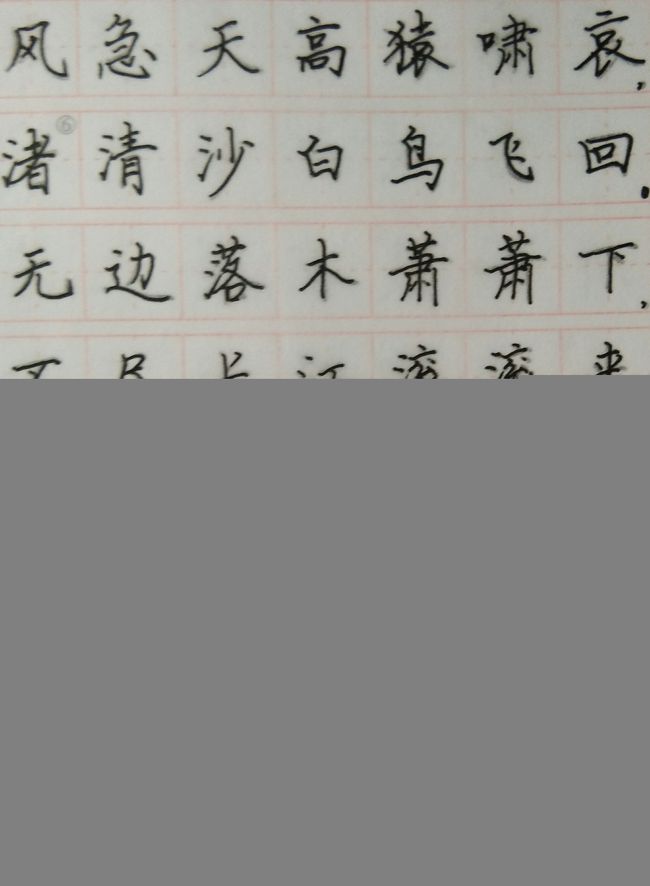 风急天高猿啸哀，
渚清沙白鸟飞回.
⑥
无边落木萧萧下，
滚滚来